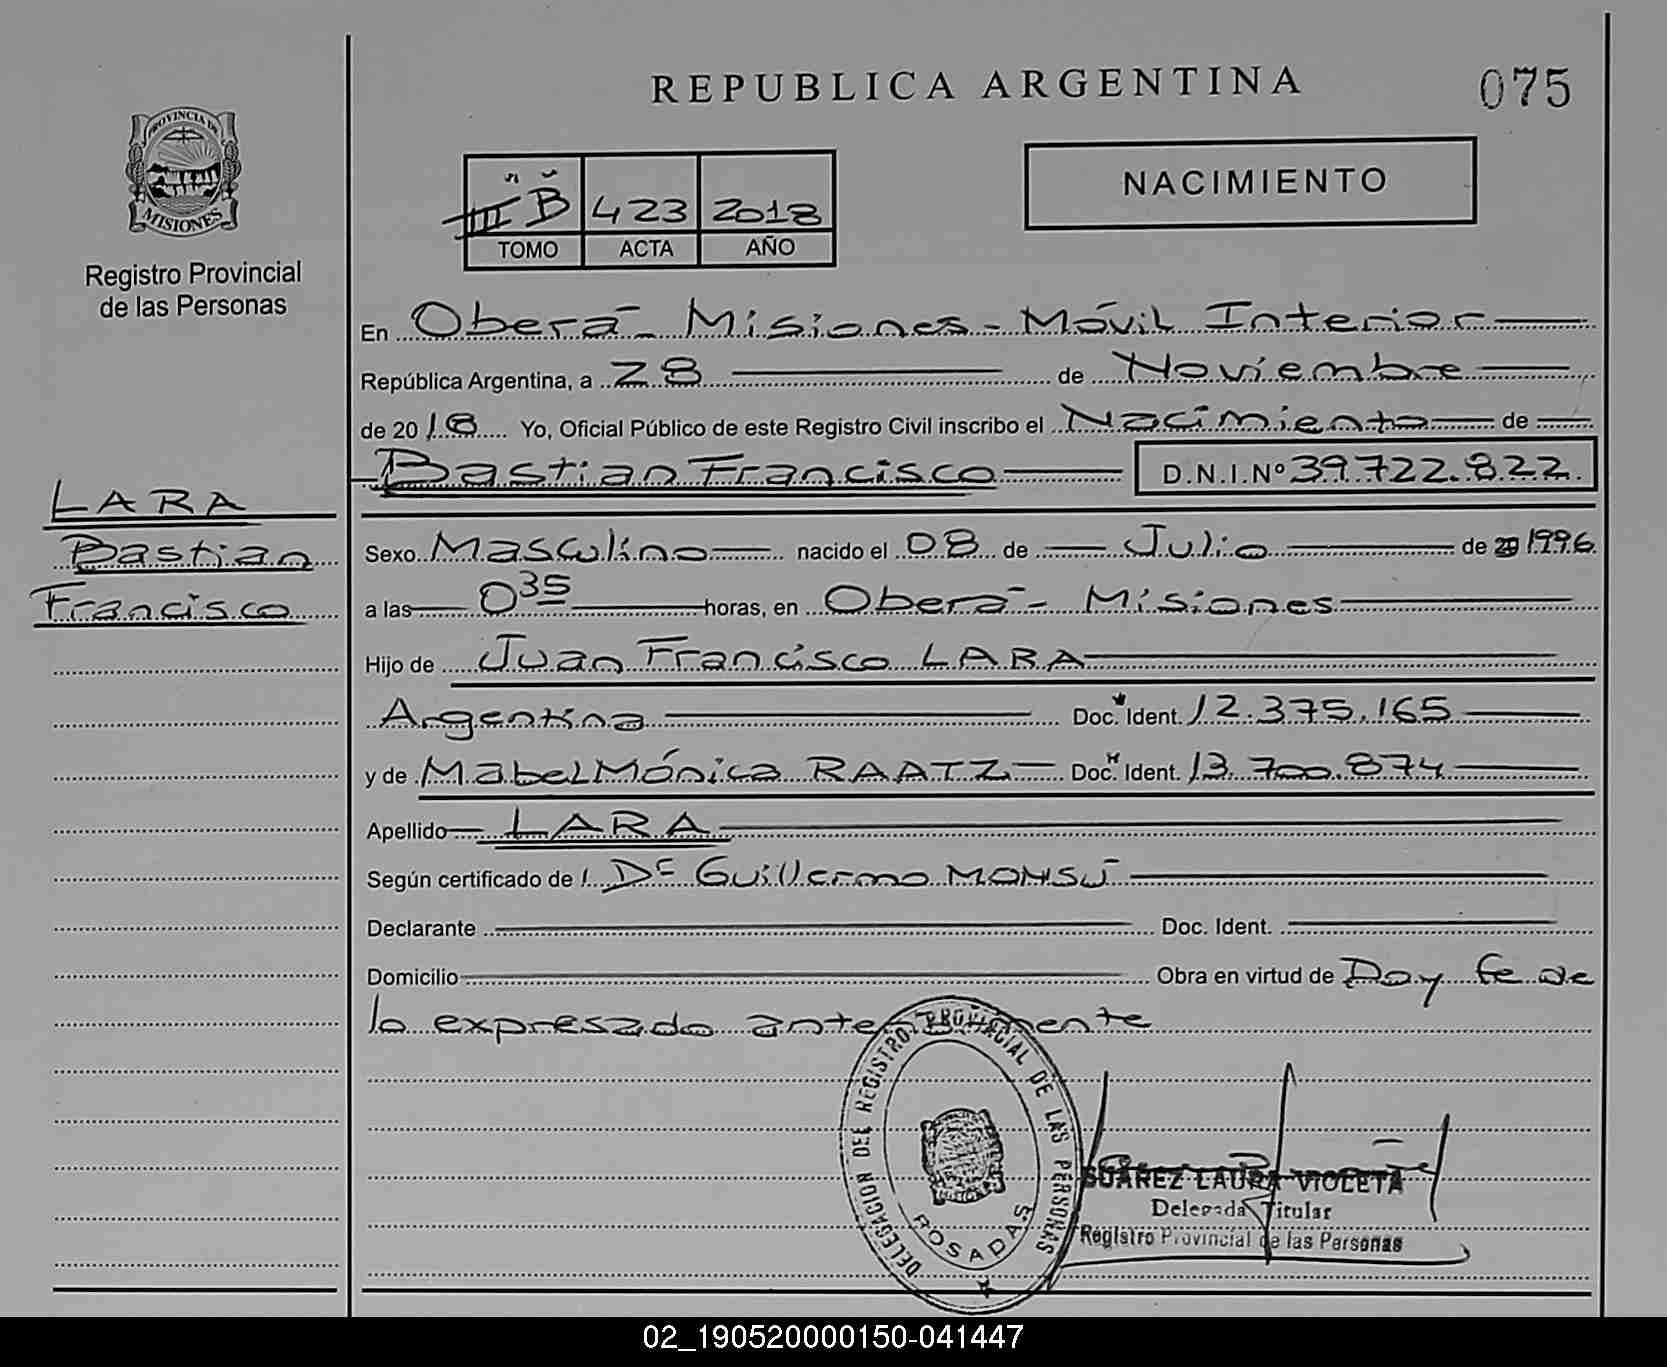 REPUBLICA ARGENTINA
075
PROVINCIA DE
MISIONES
Registro Provincial
de las Personas
NACIMIENTO
III B 423 2018
TOMO ACTA AÑO
En Oberá - Misiones - Móvil Interior
República Argentina, a 28 de Noviembre
de 2018 Yo, Oficial Público de este Registro Civil inscribo el Nacimiento de
Bastian Francisco D.N.I.Nº 39.722.822.
LARA
Bastian
Francisco
Sexo Masculino nacido el 08 de Julio de 1996
a las 0 35 horas, en Oberá - Misiones
Hijo de Juan Francisco LARA
Argentina Doc. Ident. 12.375.165
y de Mabel Mónica RAATZ Doc. Ident. 13.700.874
Apellido LARA
Según certificado de Guillermo
Declarante Doc. Ident.
Domicilio Obra en virtud de Doy fe de
lo expresado anteriormente
DELEGACION DEL REGISTRO PROVINCIAL DE LAS PERSONAS
ROSADAS
SUAREZ LAURA VIOLETA
Delegada Titular
Registro Provincial de las Personas
02_190520000150-041447